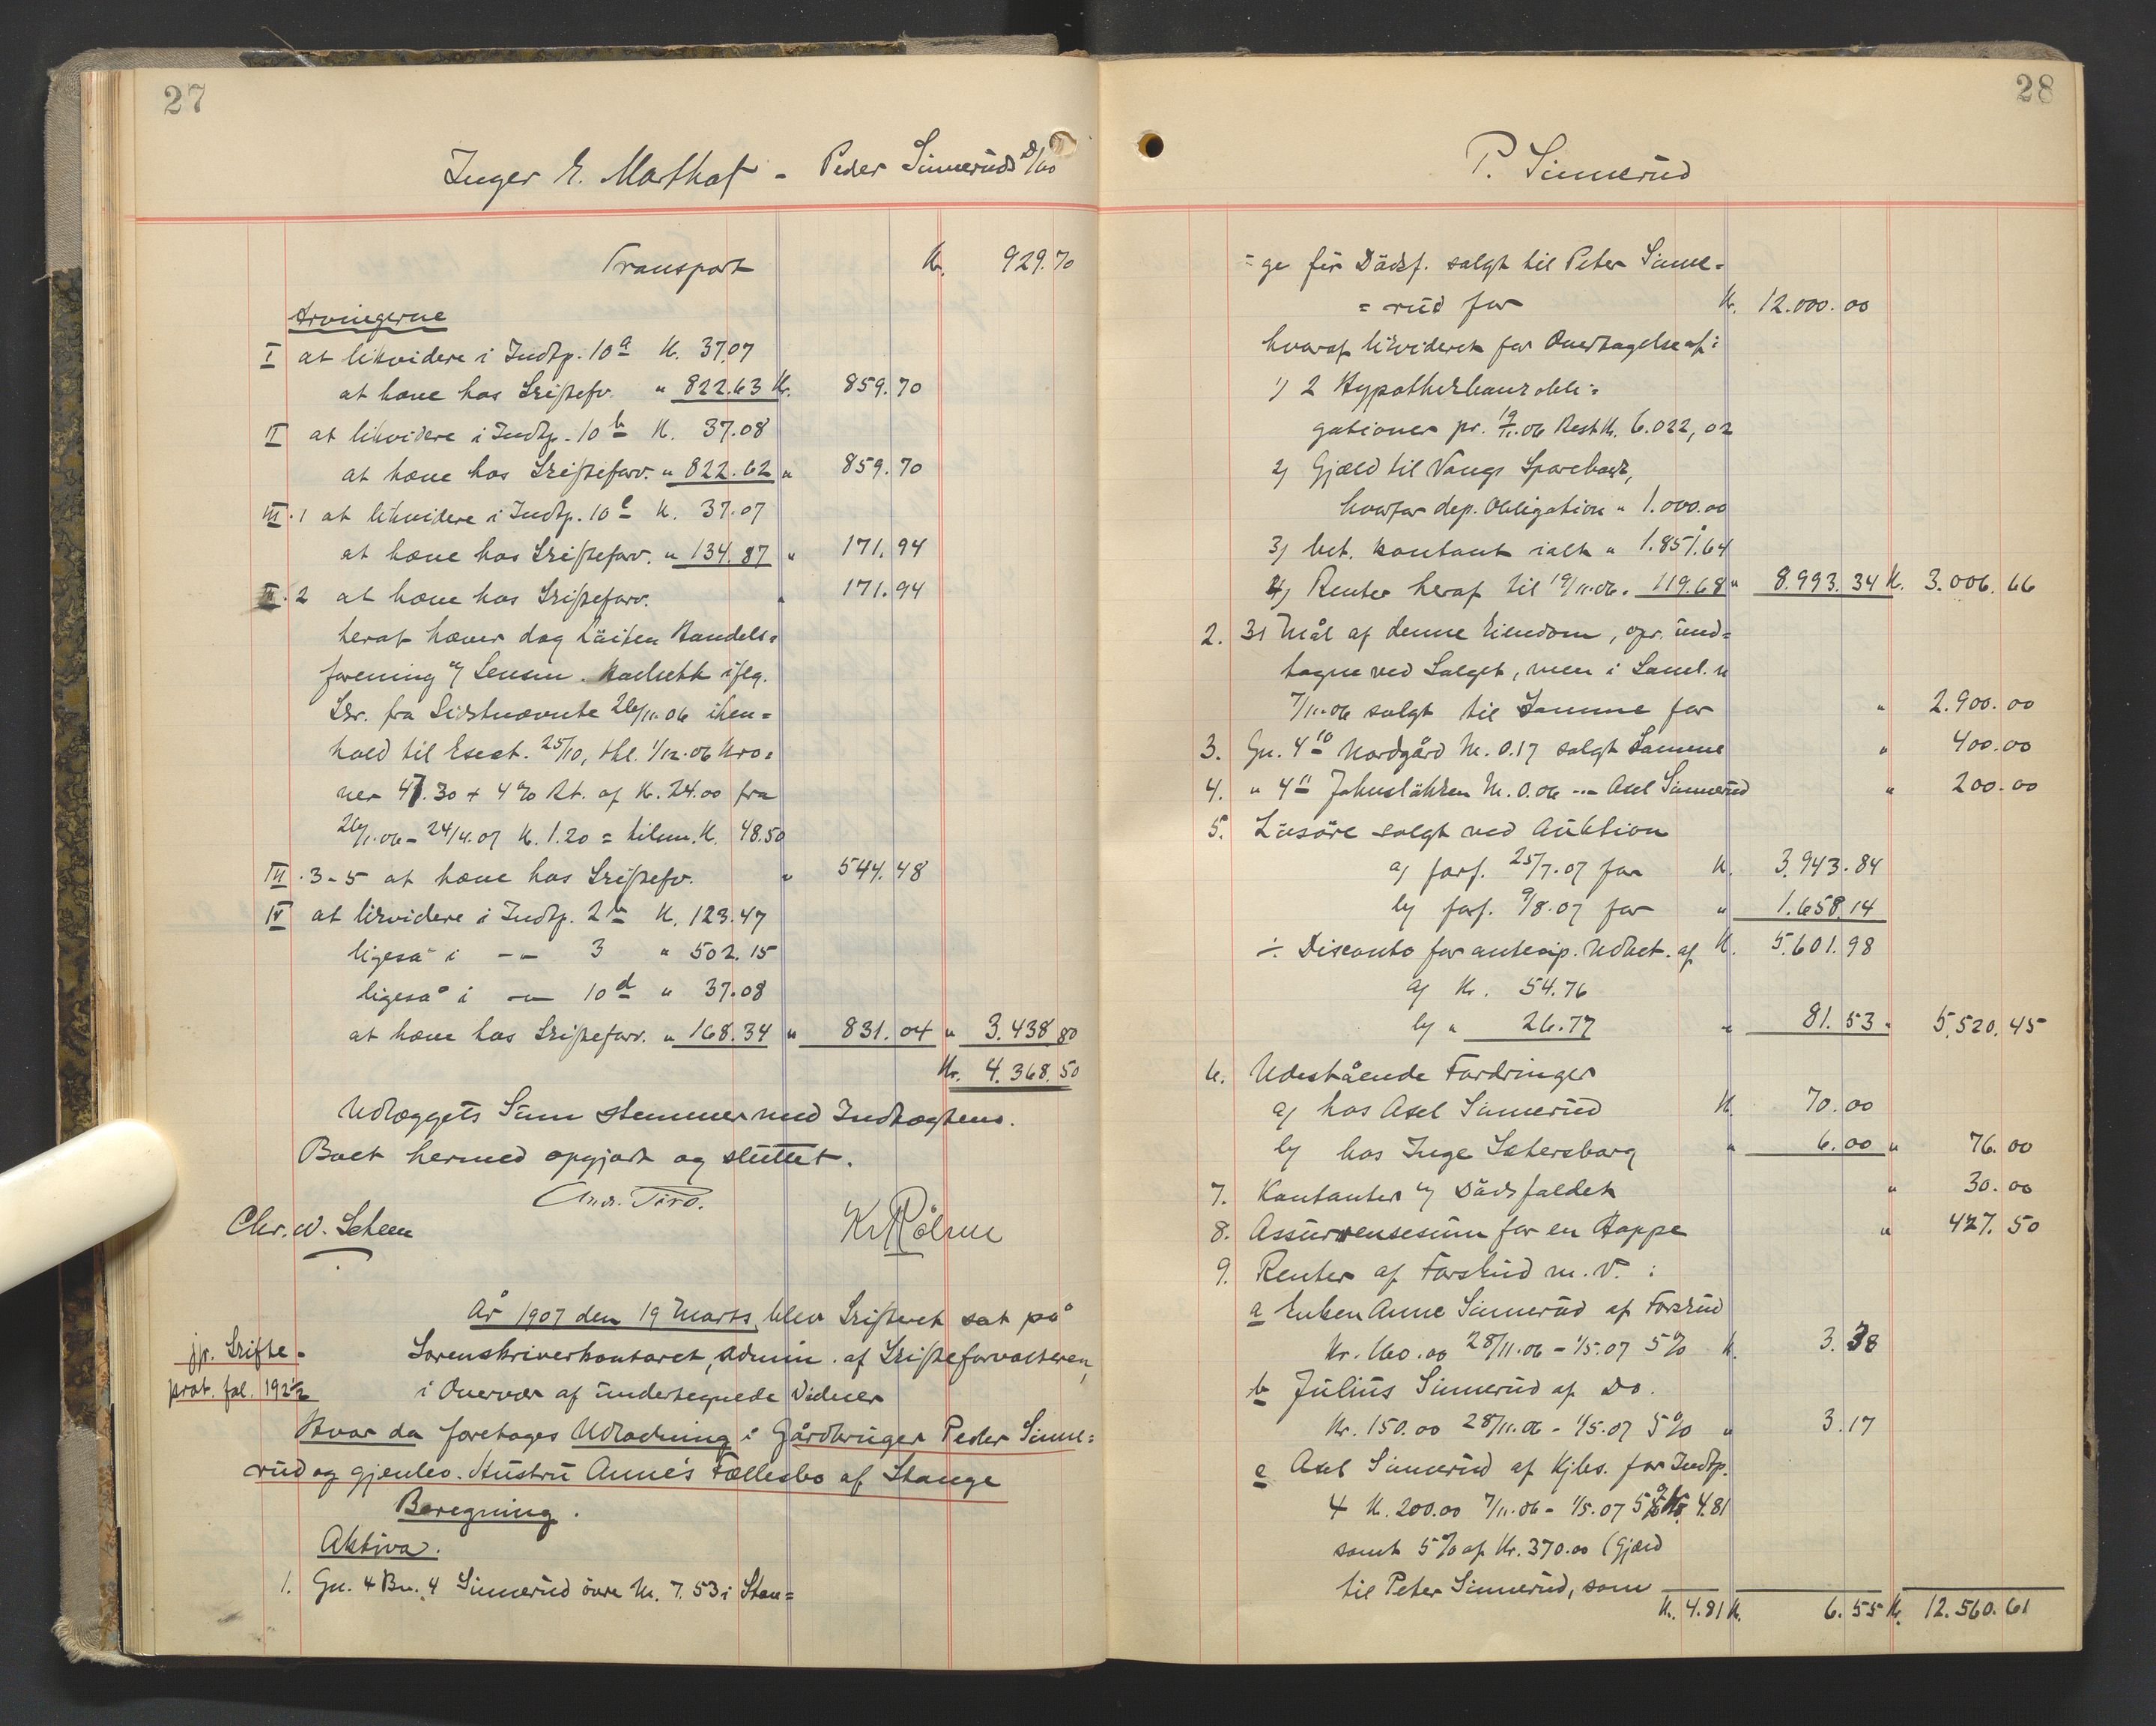 27
Inger E. Marthaf - Peder Sinneruds D/bo
Transport Kr. 929.70
Arvingerne
I at likvidere i Indtp. 10 a K. 37.07
at hæve hos Skiftefv. " 822.63 Kr. 859.70
II at likvidere i Indtp. 10 b K. 37.08
at hæve hos Skifteforv. " 822.62 " 859.70
III.1 at likvidere i Indtp. 10 c K. 37.07
at hæve hos Skifteforv. " 134.87 " 171.94
III.2 at hæve hos Skifteforv. " 171.94
heraf hæver dog Låiten Handels=
forening v/ Lensm. iflg.
Skr. fra Sidstnævnte 26/11.06 ihen=
hold til Exect. 25/10, thl. 1/12.06 Kro=
ner 47.30 + 4% Rt. af K. 24.00 fra
26/1.06 - 24/4.07 K. 1.20 = tilsm. K. 48.50
III.3-5 at hæve hos Skiftefv. " 544.48
IV at likvidere i Indtp. 2 b K. 123.47
ligeså i -"- 3 " 502.15
ligeså i -"- 10 d " 37.08
at hæve hos Skifteforv. " 168.34 " 831.04 " 3.438.80
Kr. 4.368.50
Udlæggets Sum stemmer med Indtægtens.
Boet hermed opgjort og sluttet.
Chr. W. Scheen
År 1907 den 19 Marts, blev Skifteret sat på
Sorenskriverkontoret, admin. af Skifteforvalteren,
i Overvær af undertegnede Vidner
jfr. Skifte-
prot. fol. 192 1/2
Hvor da foretoges Udlodning i Gårdbruger Peder Sinne=
rud og gjenlev. Hustru Anne's Fællesbo af Stange
Beregning.
Aktiva.
1. Gn. 4 Bn. 4 Sinnerud övre M. 7.53 i Stan=
28
P. Sinnerud
=ge før Dødsf. solgt til Peter Sinne=
=rud for K. 12.000.00
hvoraf likvideret for Overtagelse af:
1) 2 Hypothekbankobli=
gationer pr. 19/11.06 Rest K. 6.022,02
2) Gjæld til Vangs Sparebank,
hvorfor dep. Obligation " 1.000.00
3) bet. kontant ialt " 1.851.64
4) Renter heraf til 19/11.06. 119.68 " 8.993.34 K. 3.006.66
2. 31 Mål af denne Eiendom, opr. und=
tagne ved Salget, men i Saml. n
7/11.06 solgt til Samme for " 2.900.00
3. Gn. 4 10 Nordgård M. 0.17 solgt Samme " 400.00
4. " 4 11 Johnsløkken M. 0.06 -"- Axel Sinnerud " 200.00
5. Løsøre solgt ved Auktion
a) forf. 25/7.07 for K. 3.943.84
b) forf. 9/8.07 for " 1.658.14
÷ Disconto for antecip. Udbet. af K. 5.601.98
a) Kr. 54.76
b) " 26.77 " 81.53 " 5.520.45
6. Udestående Fordringer
a) hos Axel Sinnerud K. 70.00
b) hos Inge Sætersborg " 6.00 " 76.00
7. Kontanter v/ Dødsfaldet " 30.00
8. Assurrensesum for en Hoppe " 427.50
9. Renter af Forskud m.v.:
a Enken Anne Sinnerud af Forskud
Kr. 160.00 28/11.06 - 1/5.07 5% K. 3.38
b Julius Sinnerud af Do.
Kr. 150.00 28/11.06 - 1/5.07 5% " 3.17
c Axel Sinnerud af Kjbs. for Indtp.
4 K. 200.00 7/11.06 - 1/5.07 5% K. 4.81
samt 5% af Kr. 370.00 (Gjæld
til Peter Sinnerud, som
K. 4.81 K. 6.55 K. 12.560.61